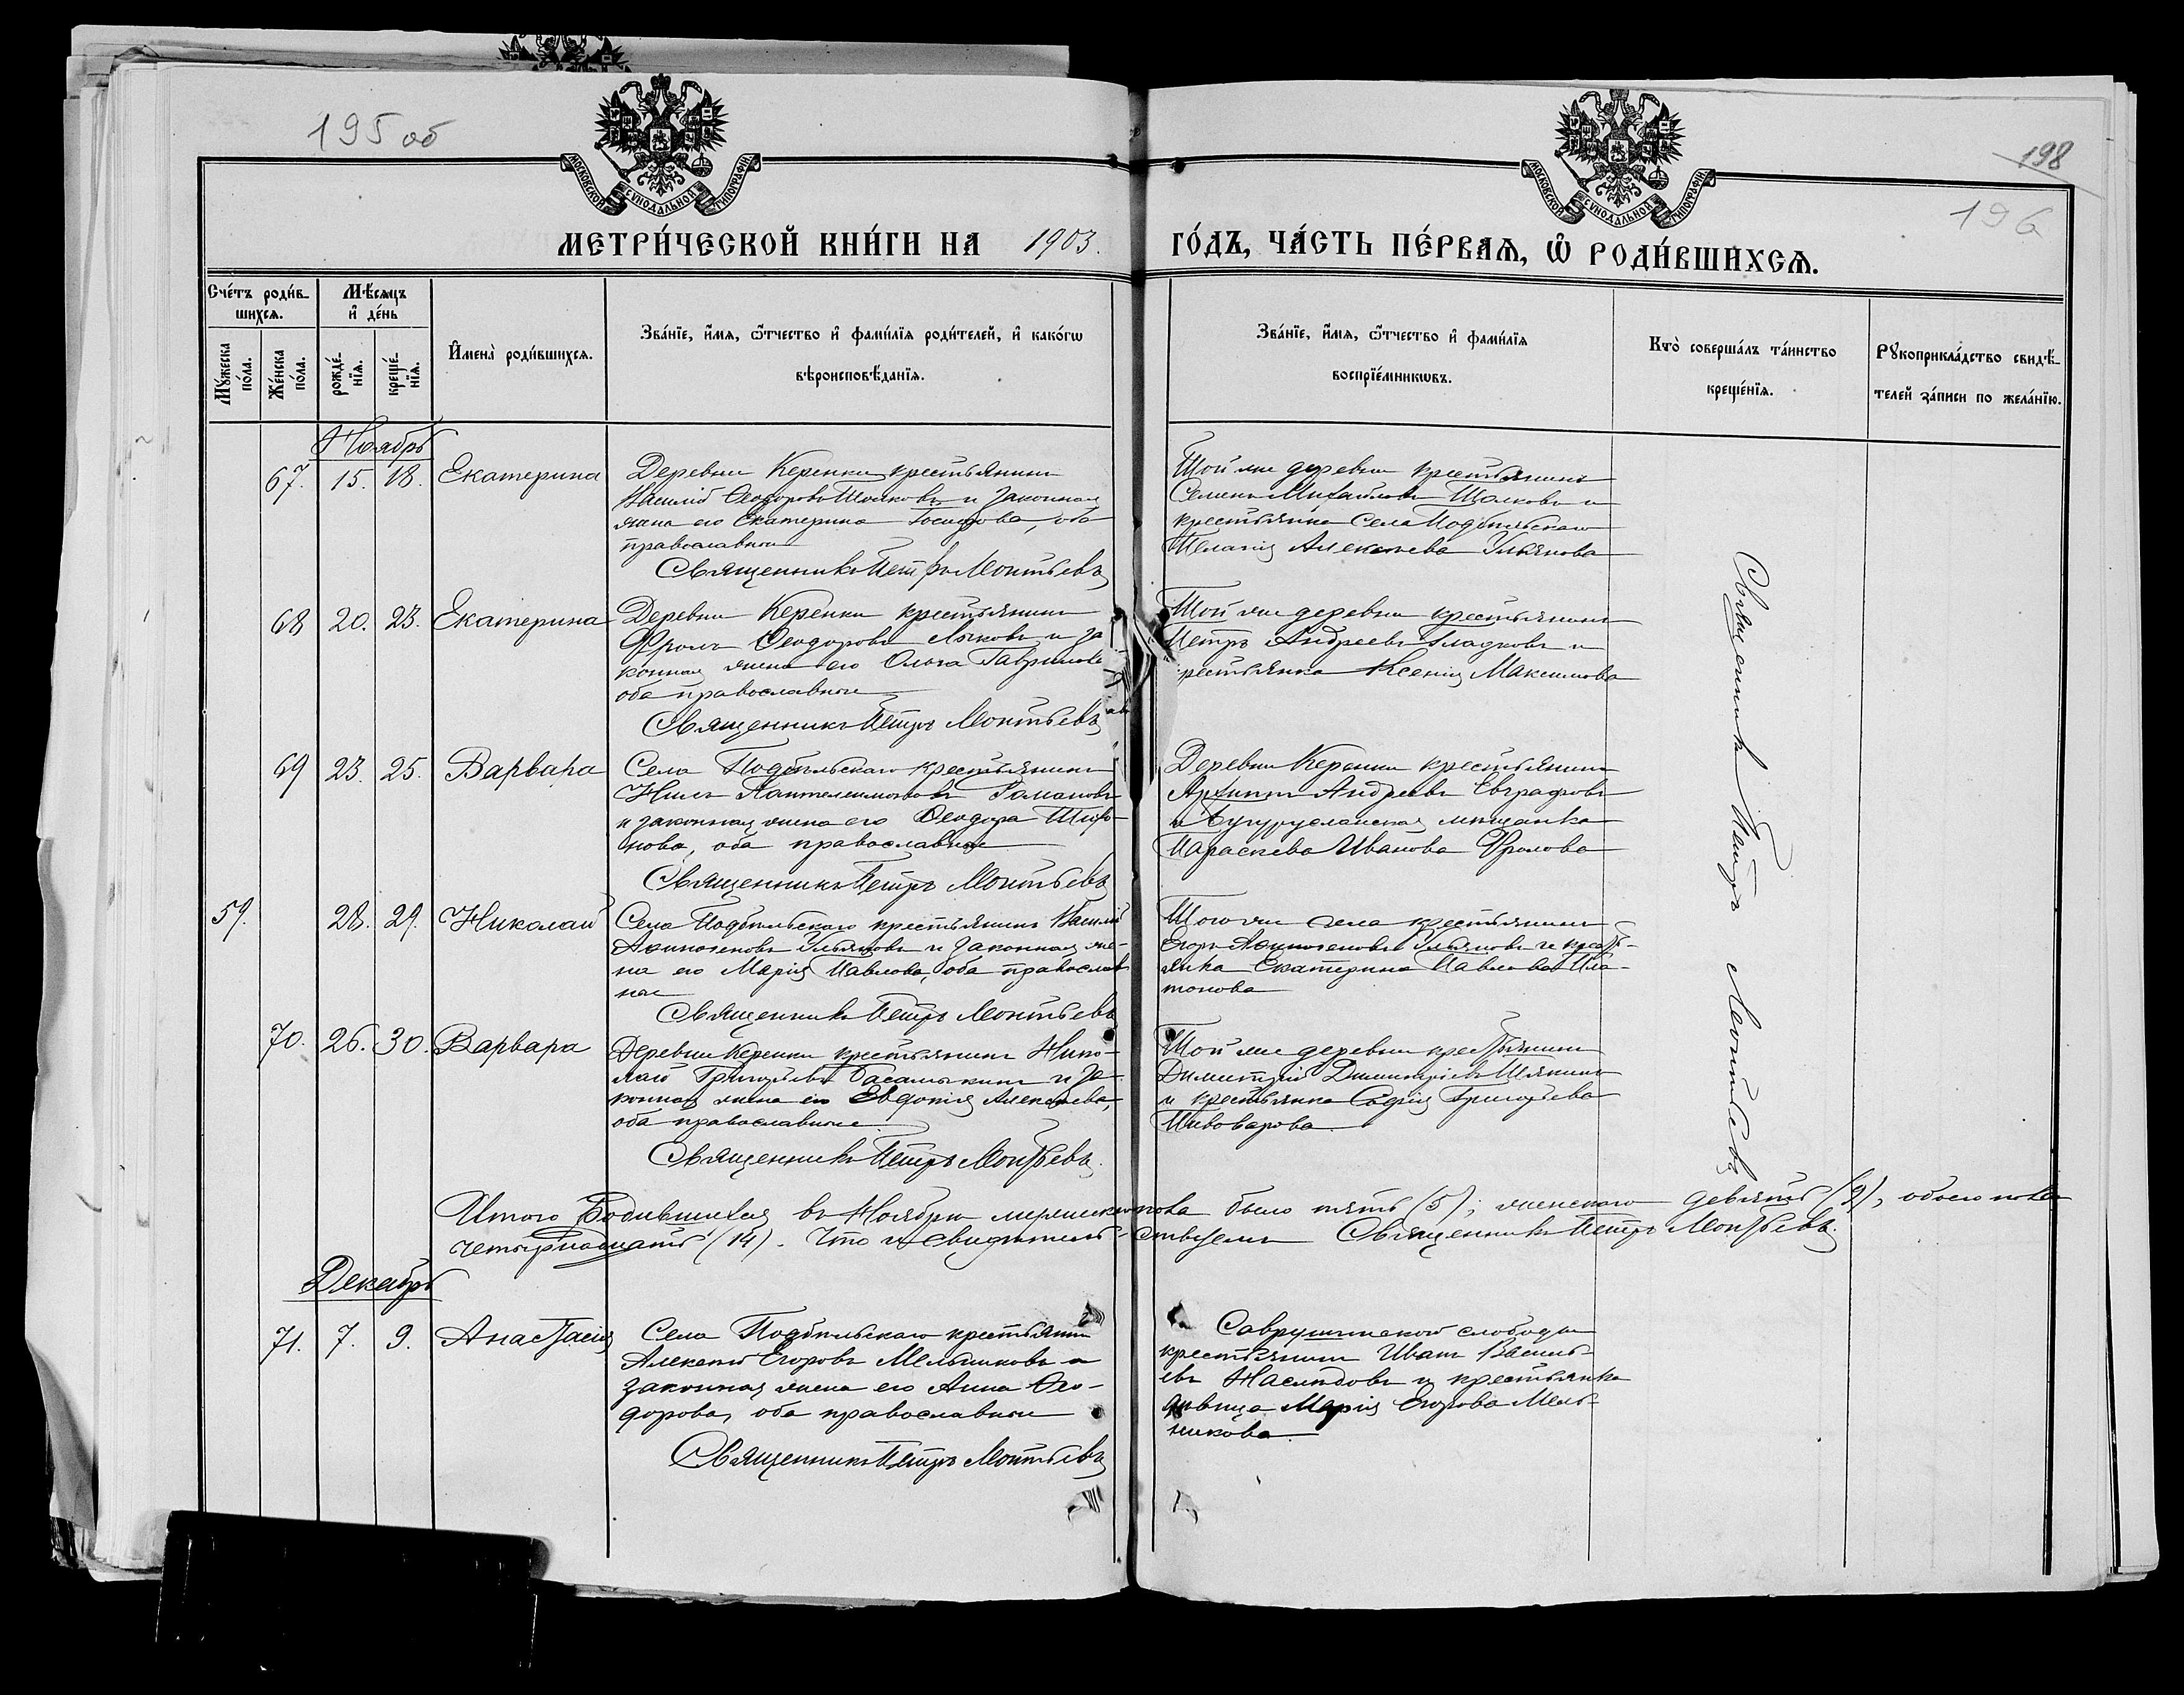 195 об
198
196
МОСКОВСКОЙ СѴНОДАЛЬНОЙ ТИПОГРАФІИ
МОСКОВСКОЙ СѴНОДАЛЬНОЙ ТИПОГРАФІИ
МЕТРИ́ЧЕСКОЙ КНИ́ГИ НА 1903. ГО́ДЪ, ЧА́СТЬ ПЕ́РВАѦ, Ѡ҆ РОДИ́ВШИХСѦ.
Сче́тъ роди́в-
шихсѧ.
Мꙋ́жеска по́ла.
Же́нска по́ла.
Мѣ́сѧцъ и҆ де́нь
рожде́-
нїѧ.
креще́-
нїѧ.
И҆мена̀ роди́вшихсѧ.
Зва́нїе, и҆́мѧ, ѻ҆́тчество и҆ фами́лїѧ роди́телей, и҆ како́гѡ
вѣроисповѣ́данїѧ.
Зва́нїе, и҆́мѧ, ѻ҆́тчество и҆ фами́лїѧ
воспрїе́мникѡвъ.
Кто̀ соверша́лъ та́инство
креще́нїѧ.
Рꙋкоприкла́дство свидѣ́-
телей за́писи по жела́нїю.
Ноябрь
67. 15. 18. Екатерина
Деревни Керенки крестьянинъ
Василій Ѳеодоровъ и законная
жена его Екатерина оба
православные
Священникъ Петръ Леонтьевъ
Той же деревни крестьянинъ
Семенъ Михайловъ и
крестьянка Села Подбѣльскаго
Пелагія Алексѣева Ульянова
68 20. 23. Екатерина
Деревни Керенки крестьянинъ
Фролъ Ѳеодоровъ Лыковъ и за
конная жена его Ольга Гаврилова
оба православные
Священникъ Петръ Леонтьевъ
Той же деревни крестьянинъ
Петръ Андреевъ Гладковъ и
крестьянка Ксенія Максимова
69 23. 25. Варвара
Села Подбѣльскаго крестьянинъ
Нилъ Пантелеимоновъ Романовъ
и законная жена его Ѳеодора Тихо-
нова, оба православные
Священникъ Петръ Леонтьевъ
Деревни Керенки крестьянинъ
Архипъ Андреевъ Евграфовъ
и Бугурусланская мѣщанка
Параскева Иванова Фролова
59. 28. 29. Николай
Села Подбѣльскаго крестьянинъ Василій
Афиногеновъ Ульяновъ и законная же-
на его Марія Павлова, оба православ
ные
Священникъ Петръ Леонтьевъ
Того же села крестьянинъ
Егоръ Афиногеновъ Ульяновъ и кресть-
янка Екатерина Павлова Пла-
тонова
70. 26. 30. Варвара
Деревни Керенки крестьянинъ Нико-
лай Григорьевъ и за-
конная жена его Евдокія Алексѣева,
оба православные
Священникъ Петръ Леонтьевъ.
Той же деревни крестьянинъ
Димитрій Димитріевъ
и крестьянка Софія Григорьева
Пивоварова
Священникъ Петръ Леонтьевъ
Итого Родившихся въ Ноябрѣ мужескаго пола было пять (5); женскаго девять (9), обоего пола
четырнадцать (14). Что и свидѣтель-ствуемъ Священникъ Петръ Леонтьевъ.
Декабрь
71. 7. 9. Анастасія
Села Подбѣльскаго крестьянинъ
Алексѣй Егоровъ Мельниковъ и
законная жена его Анна Ѳео-
дорова, оба православные
Священникъ Петръ Леонтьевъ
слободы
крестьянинъ Иванъ Василь-
евъ Наслѣдовъ и крестьянка
дѣвица Марія Егорова Мель-
никова